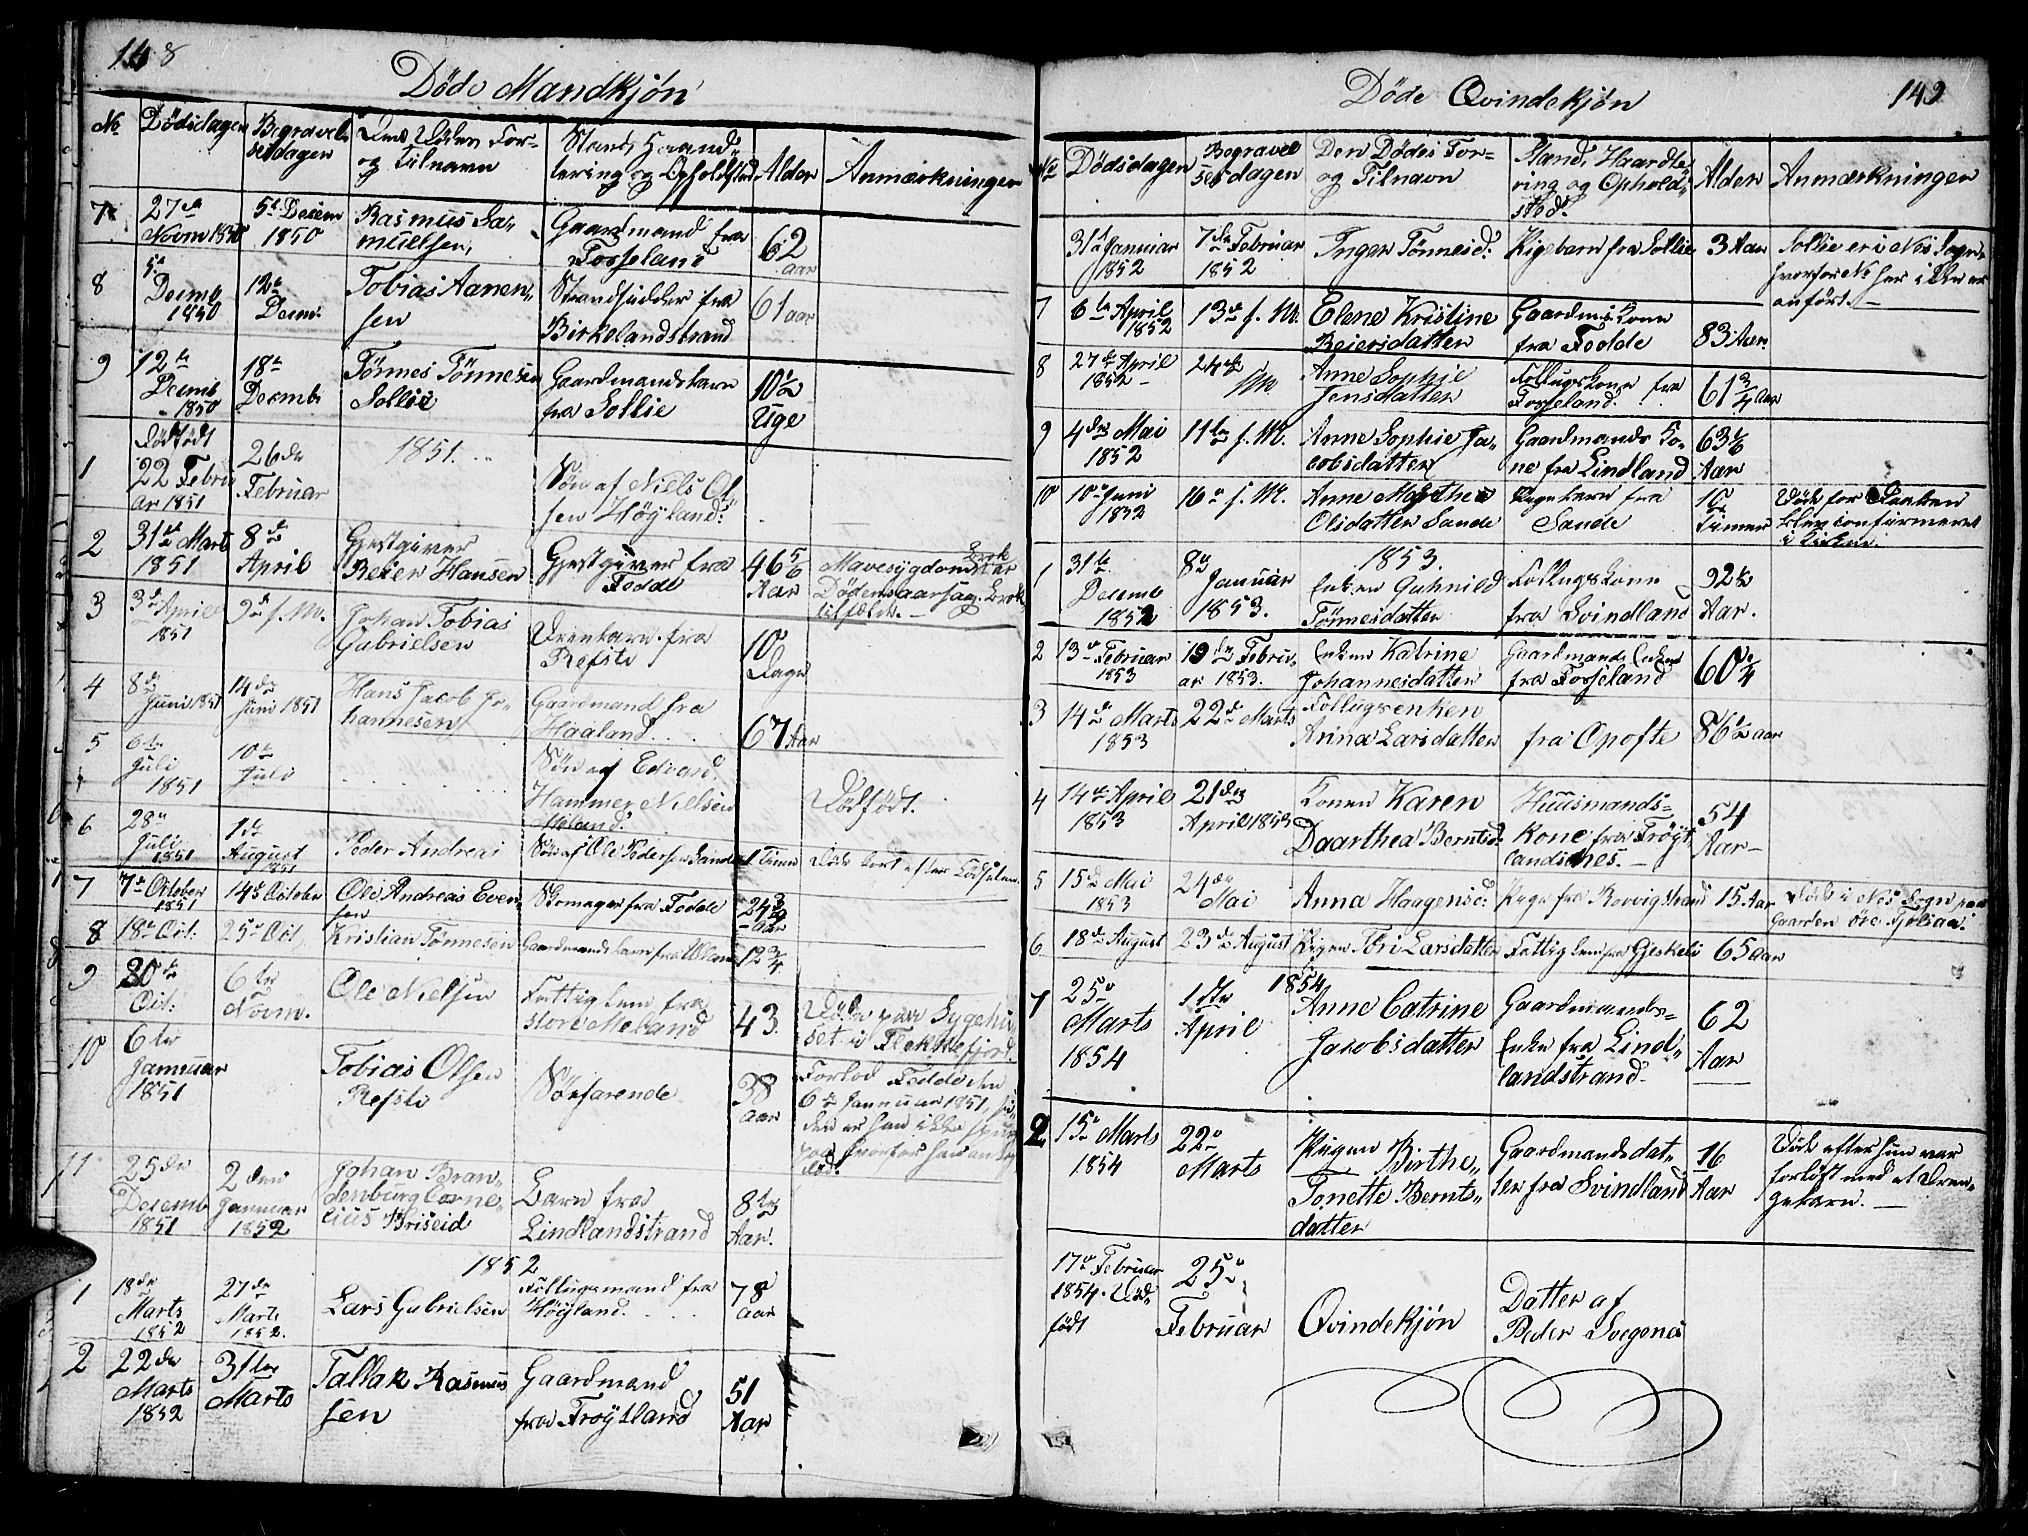 148
Døde Mandkjøn
No. Dødsdagen Begravelsesdagen Dens Dødes For- og Tilnavn Stand, Haandtering og Opholdssted Alder Anmærkninger
7 27de Novm 1850 5te Decem 1850 Rasmus Samuelsen, Gaardmand fra Fosseland 62 aar
8 5te Decmb 1850 12te Decm: Tobias Aanensen Strandsidder fra Birkelandstrand 61 aar
9 12te Decmb 1850 18de Decmb: Tønnes Tønnesen Sollie Gaardmandsbarn fra Sollie 10½ Uge
1851.
1 Dødfødt 22 Februar 1851 26de Februar Søn af Niels Olsen Høyland:
2 31te Marts 1851 8de April Gjestgiver Reier Hansen Gjestgiver fra Fedde 46 5/6 Aar Mavesygdom Brok var Dødensaarsag. Brok tilfælde. —
3 3de April 1851 9de s. M. Johan Tobias Gabrielsen Drenbarn fra Refsti 10 Dage
4 8de Juni 1851 14de Juni 1851 Hans Jacob Johannesen Gaardmand fra Haaland 67 Aar
5 6te Juli 1851 10de Juli Søn af Edvard Hammer Nielsen Meland. Dødfødt.
6 28de Juli 1851 1ste August 1851 Peder Andreas Søn af Ole Pedersen Sande 1 Time Døde kort efter Fødselen.
7 7de October 1851 14de October Ole Andreas Evensen Skomager fra Fedde 24 Aar
8 18de Oct: 25de Oct. Kristian Tønnesen Gaardmandsbarn fra 12¾
9 30te Oct: 6te Novm. Ole Nielsen Fattiglem fra store Meland 43. Døde paa Sygehuset i Flekkefjord.
10 6te Januar 1851 Tobias Olsen Refsti Søefarende 38 aar Forlod Fedde den 6te Januar 1851, siden er han ikke spurgt hvorfor han ansees død.
11 25de Decemb 1851 2den Januar 1852 Johan Brandenburg Cornelius Briseid Barn fra Lindlandstrand 8te Aar.
1852
1 18de Marts 1852 27de Marts 1852. Lars Gabrielsen Føllugsmand fra Høyland. 78 aar
2 22de Marts 1852 31te Marts Tallak Rasmussen Gaardmand fra Trøytland 51 Aar
149
Døde Qvindekjøn
No Dødsdagen Begravelsesdagen Den Dødes For- og Tilnavn Stand, Haandtering og Opholdsted. Alder Anmærkninger
31te Januar 1852 7de Februar 1852 Inger Tønnesd: Pigebarn fra Sollie 3 Aar Sollie er i Næs Sogn, hvorfor No her ikke er anført. —
7 6te April 1852 13de s. M. Elene Kristine Reiersdatter Gaardmds Kone fra Fedde 83 Aar.
8 27de April 1852 — 24de Anne Sophie Jensdatter Føllugskone fra Fosseland. 61¾ Aar
9 4de Mai 1852 11te s. M. Anne Sophie Jacobsdatter Gaardmands Kone fra Lindland 63½ Aar
10 10de Juni 1852 16de s. M. Anne Marthe Olsdatter Sande Pigebarn fra Sande Timer Døde før Daaben blev confirmeret i Kirken.
1853.
1 31te Decmb 1852 8de Januar 1853. Enken Guhnild Tønnesdatter Føllugskone fra Svindland 92½ Aar.
2 13de Februar 1853 19de Februar 1853. Enken Katrine Johannesdatter Gaardmands Enke fra Fosseland 60¼
3 14de Marts 1853 22de Marts Føllugsenken Anna Larsdatter fra Opofte 86½ aar
4 14de April 1853 21de April 1853 Konen Karen Daarthea Berntsd: Huusmands-Kone fra Trøytlandsnes. — 54 Aar —
5 15de Mai 1853 24de Mai Anna Haagensd: Pige fra Rorvigstrand 15 Aar Døde i Næs Sogn paa Gaarden
6 18de August 23de August Pigen Tori Larsdatter Fattiglem fra Gjeskeli 65 Aar
1854.
1 25de Marts 1854 1ste April Anne Catrine Jacobsdatter Gaardmands-Enke fra Lindlandstrand. 62 Aar
2 15de Marts 1854 22de Marts Pigen Birthe Tonette Berntsdatter Gaardmandsdatter fra Svindland 16 Aar Døde efter hun var forløst med et Drengebarn. —
17de Februar 1854. Dødfødt 25de Februar Qvindekjøn Datter af Peder Svegenes